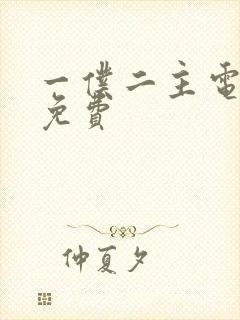 一僕二主電
免費
仲夏夕